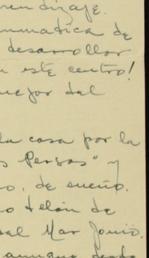 rendizaje.
ramatica de
desarrollar
n este centro!
mejor del
la casa por la
s Persas" y
o, de sueño.
o telón de
al Mar Jonio.
aunque desde